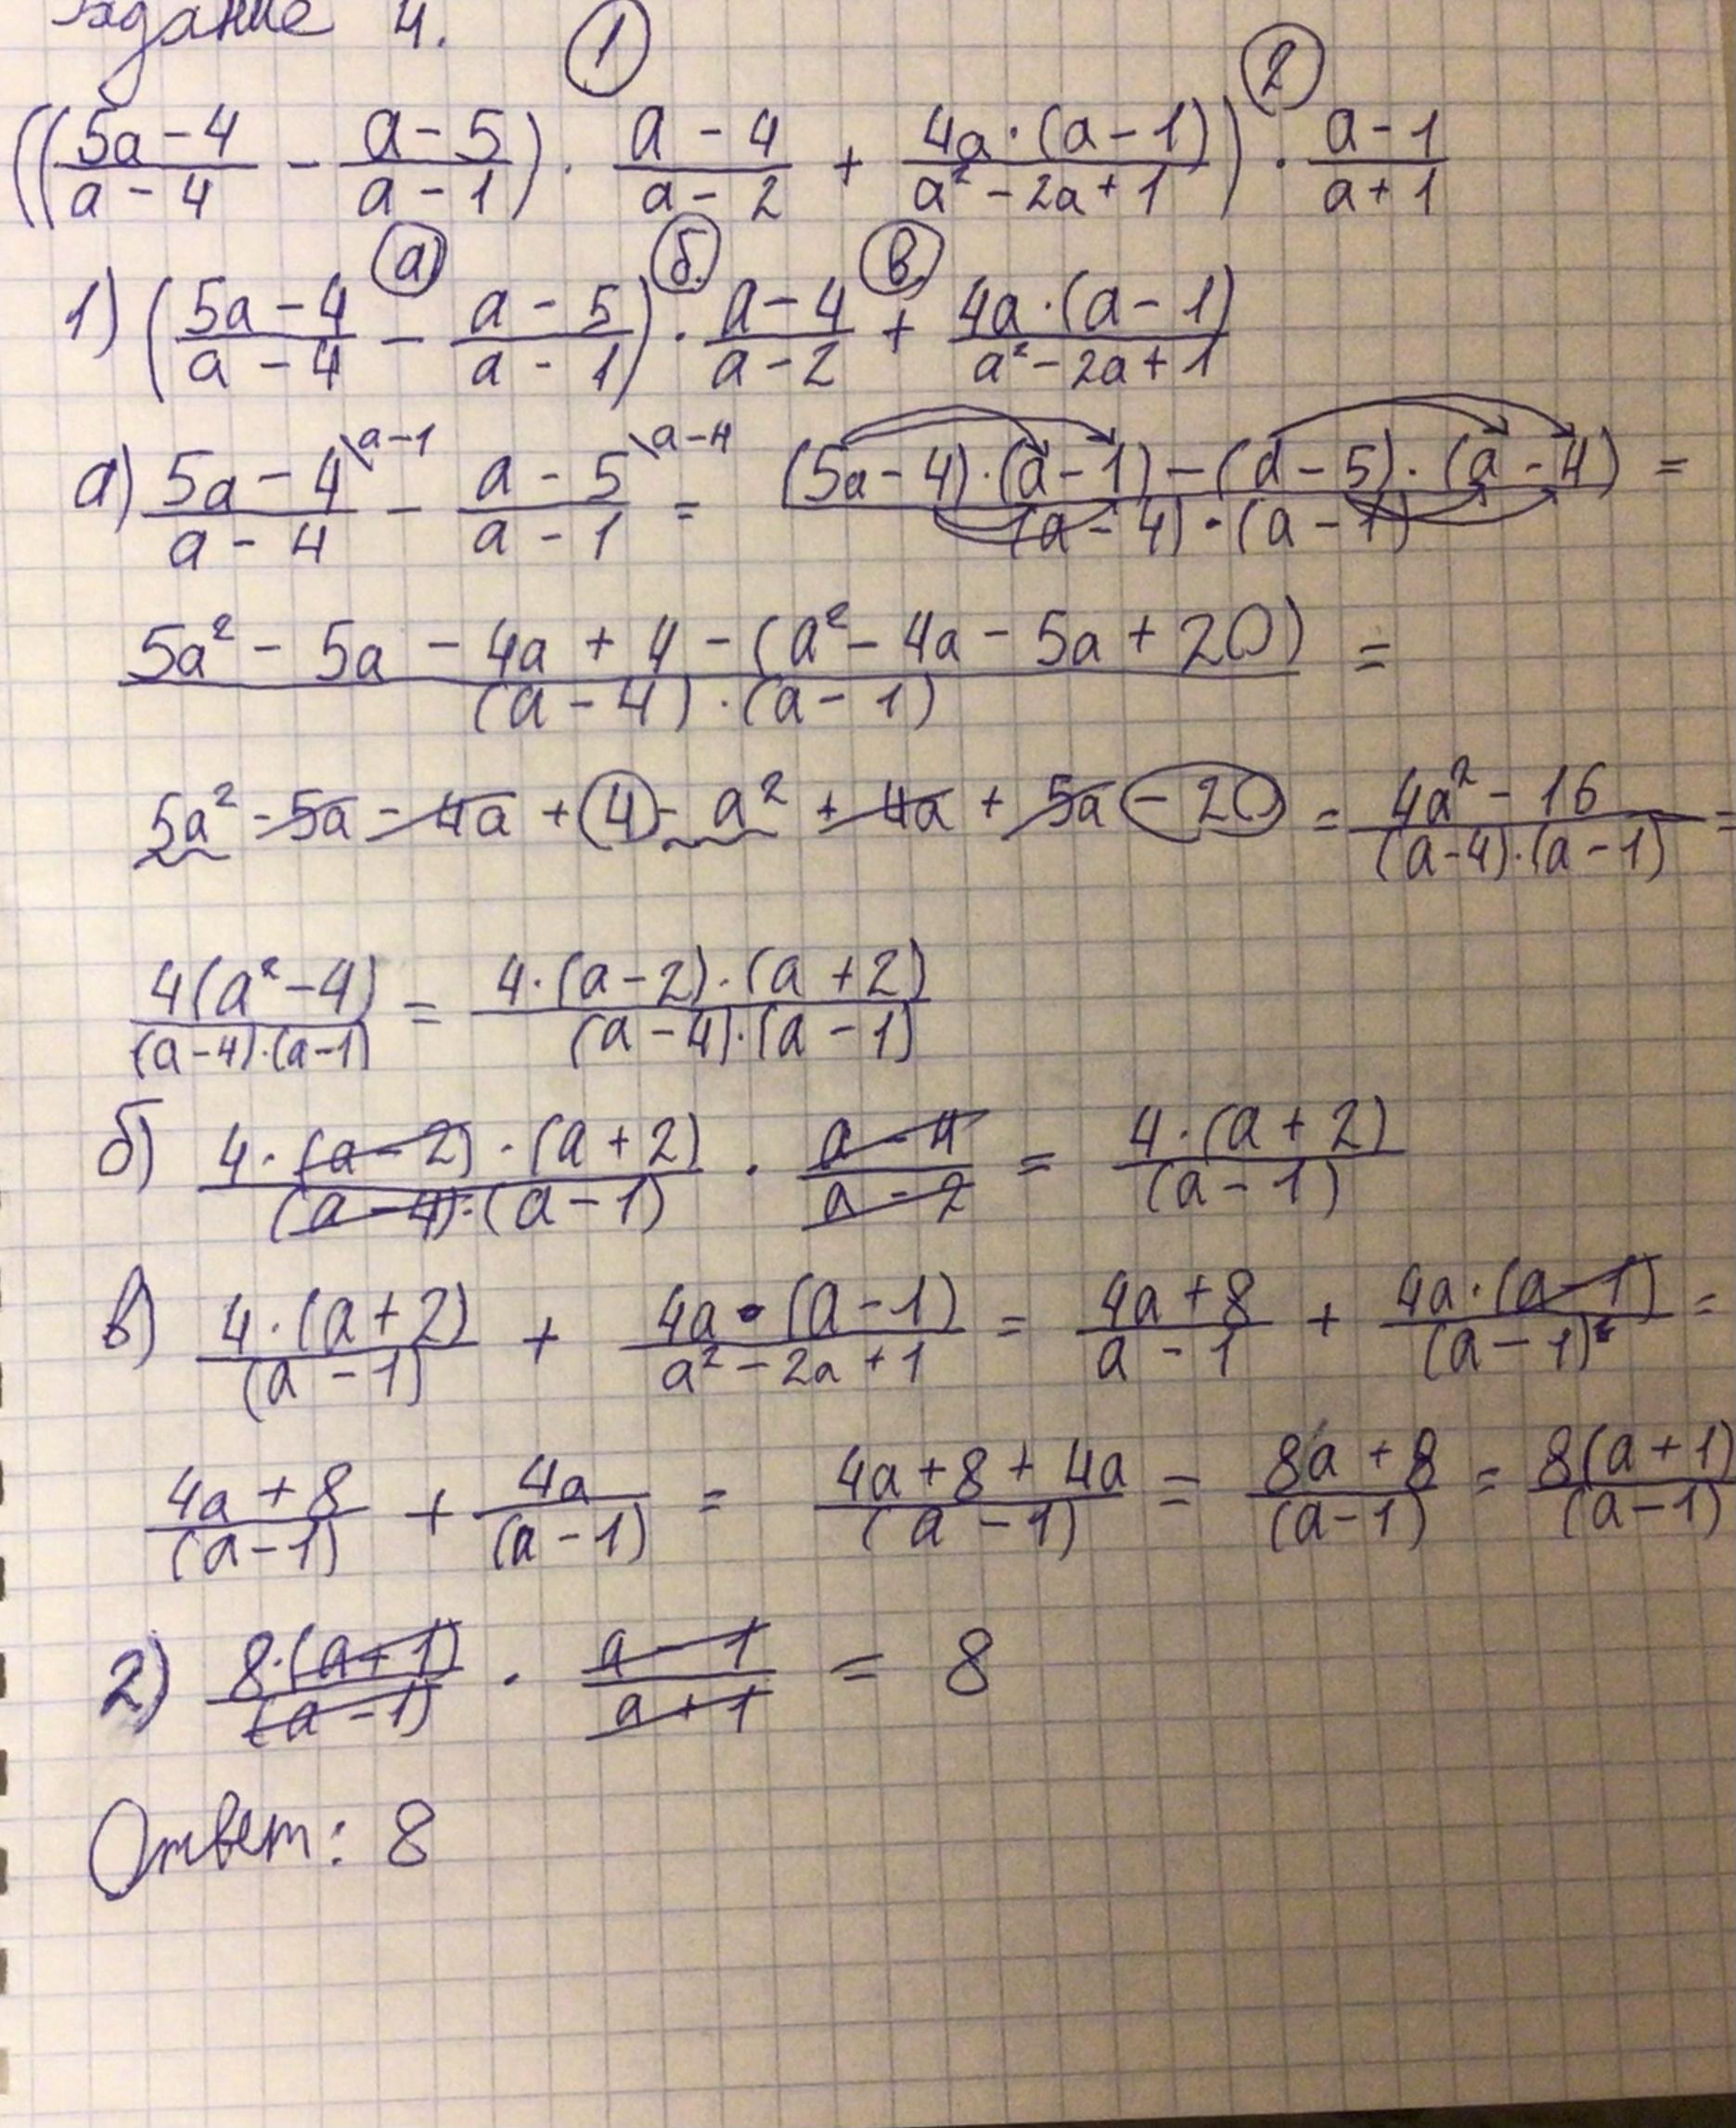 Задание 4.
① ②
((5a-4)/(a-4) - (a-5)/(a-1)) · (a-4)/(a-2) + 4a·(a-1)/(a²-2a+1)) · (a-1)/(a+1)
а) б. в.
1) ((5a-4)/(a-4) - (a-5)/(a-1)) · (a-4)/(a-2) + 4a·(a-1)/(a²-2a+1)
а) (5a-4)/(a-4) \a-1 - (a-5)/(a-1) \a-4 = ((5a-4)·(a-1)-(a-5)·(a-4))/((a-4)·(a-1)) =
(5a²-5a-4a+4-(a²-4a-5a+20))/((a-4)·(a-1)) =
5a²-5a-4a+4-a²+4a+5a-20 = (4a²-16)/((a-4)·(a-1)) =
4(a²-4)/((a-4)·(a-1)) = 4·(a-2)·(a+2)/((a-4)·(a-1))
б) 4·(a-2)·(a+2)/((a-4)·(a-1)) · (a-4)/(a-2) = 4·(a+2)/(a-1)
в) 4·(a+2)/(a-1) + 4a·(a-1)/(a²-2a+1) = (4a+8)/(a-1) + 4a·(a-1)/(a-1)² =
(4a+8)/(a-1) + 4a/(a-1) = (4a+8+4a)/(a-1) = (8a+8)/(a-1) = 8(a+1)/(a-1)
2) 8·(a+1)/(a-1) · (a-1)/(a+1) = 8
Ответ: 8